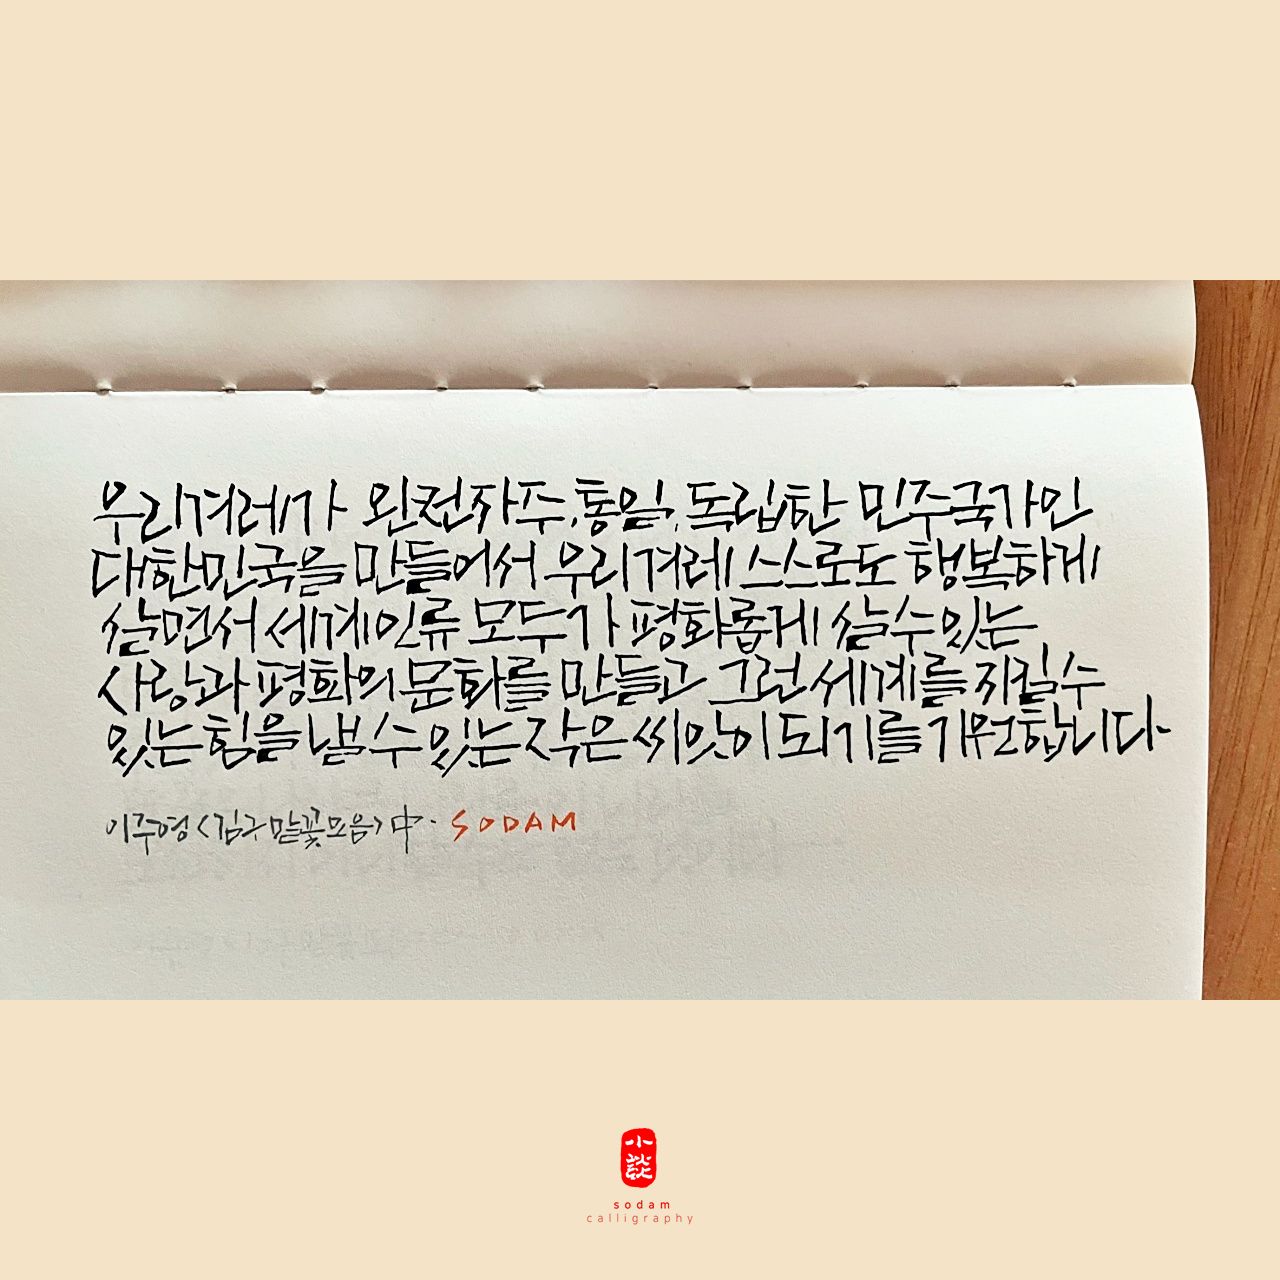 우리겨레가 완전자주, 통일, 독립한 민주국가인
대한민국을 만들어서 우리겨레 스스로도 행복하게
살면서 세계인류 모두가 평화롭게 살 수 있는
사랑과 평화의 문화를 만들고 그런 세계를 지킬 수
있는 힘을 낼 수 있는 작은 씨앗이 되기를 기원합니다.
이주영 <김구 말꽃모음> 中. SODAM
小談
sodam
calligraphy